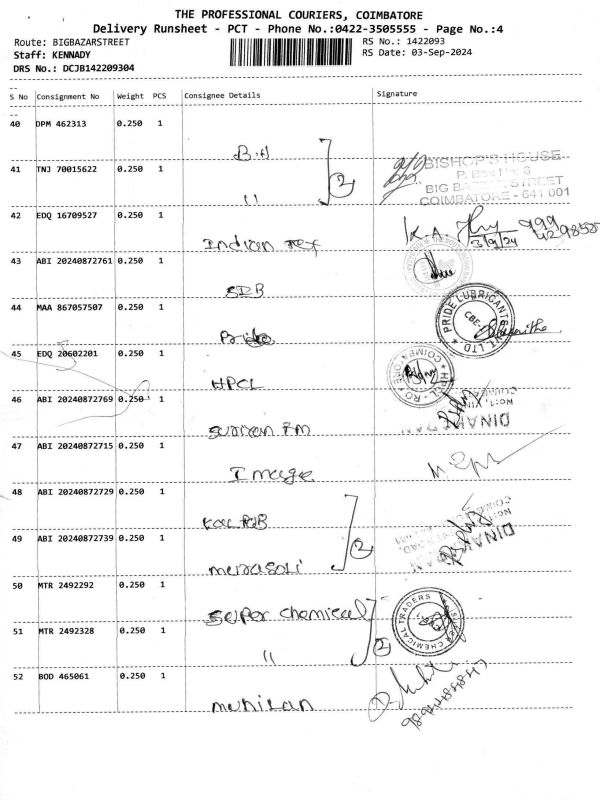 THE PROFESSIONAL COURIERS, COIMBATORE
Delivery Runsheet - PCT - Phone No.:0422-3505555 - Page No.:4
Route: BIGBAZARSTREET RS No.: 1422093
Staff: KENNADY RS Date: 03-Sep-2024
DRS No.: DCJB142209304
S No Consignment No Weight PCS Consignee Details Signature
40 DPM 462313 0.250 1
BISHOP'S HOUSE
41 TNJ 70015622 0.250 1 " 2
P. Box No: 6
BIG BAZAAR STREET
COIMBATORE - 641 001
42 EDQ 16709527 0.250 1 Indian Tex K.A. 3/9/24
43 ABI 20240872761 0.250 1 SDB
44 MAA 867057507 0.250 1 Pride PRIDE LUBRICANTS PVT LTD CBE
45 EDQ 20602201 0.250 1 HPCL HPCL - RO COIMBATORE
46 ABI 20240872769 0.250 1 DINAKARAN
47 ABI 20240872715 0.250 1 Image
48 ABI 20240872729 0.250 1 2
49 ABI 20240872739 0.250 1 DINAKARAN
50 MTR 2492292 0.250 1 super chemical SUPER CHEMICAL TRADERS
51 MTR 2492328 0.250 1 " 2
52 BOD 465061 0.250 1